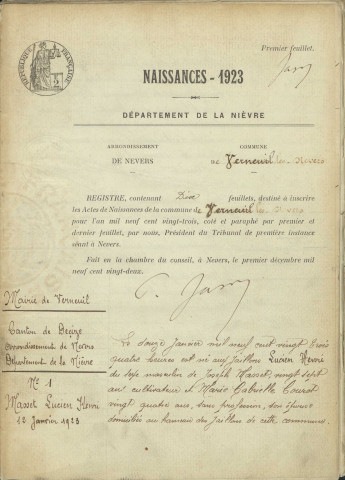 Premier feuillet.
RÉPUBLIQUE FRANÇAISE
NAISSANCES - 1923
DÉPARTEMENT DE LA NIÈVRE
ARRONDISSEMENT
DE NEVERS
COMMUNE
DE Verneuil
REGISTRE, contenant feuillets, destiné à inscrire
les Actes de Naissances de la commune de Verneuil
pour l'an mil neuf cent vingt-trois, coté et paraphé par premier et
dernier feuillet, par nous, Président du Tribunal de première instance
séant à Nevers.
Fait en la chambre du conseil, à Nevers, le premier décembre mil
neuf cent vingt-deux.
Mairie de Verneuil
Canton de Decize
Arrondissement de Nevers
Département de la Nièvre
N° 1
Masset Lucien Henri
12 Janvier 1923
Le douze Janvier mil neuf cent vingt trois
quatre heures est né aux Jaillons Lucien Henri
du sexe masculin de Joseph Masset, vingt sept
ans cultivateur et Marie Gabrielle
vingt quatre ans, sans profession, son épouse
domiciliés au hameau des Jaillons de cette commune.